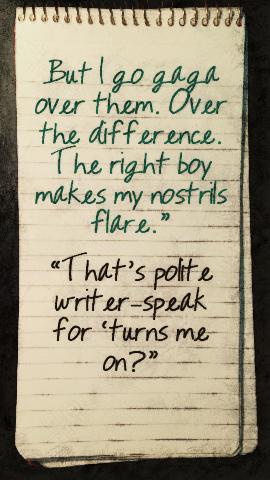 But I go gaga
over them. Over
the difference.
The right boy
makes my nostrils
flare."
"That's polite
writer-speak
for 'turns me
on?"